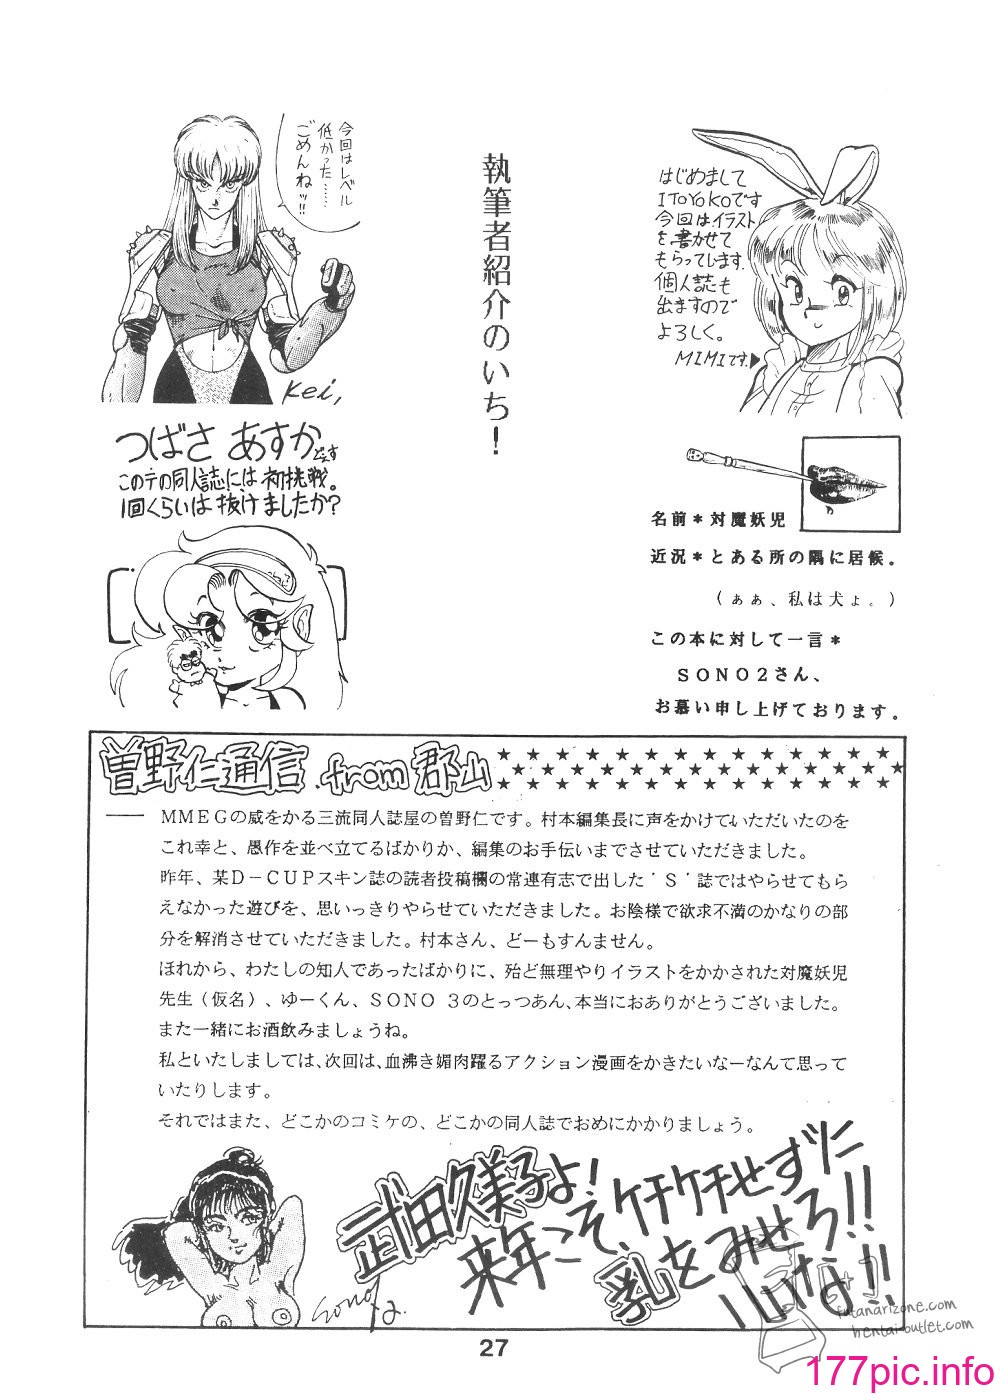 執筆者紹介のいち！
はじめまして
ITOYOKOです
今回はイラスト
を書かせて
もらってします.
個人誌も
出ますので
よろしく。
MIMIです.
今回はレベル
低かった……
ごめんね!!
Kei,
つばさ あすかどぇす
このテの同人誌には初挑戦。
1回くらいは抜けましたか？
名前＊対魔妖児
近況＊とある所の隅に居候。
（ぁぁ、私は犬ょ。）
この本に対して一言＊
SONO2さん、
お慕い申し上げております。
曽野仁通信 from 郡山
MMEGの威をかる三流同人誌屋の曽野仁です。村本編集長に声をかけていただいたのを
これ幸と、愚作を並べ立てるばかりか、編集のお手伝いまでさせていただきました。
昨年、某D－CUPスキン誌の読者投稿欄の常連有志で出した‘S’誌ではやらせてもら
えなかった遊びを、思いっきりやらせていただきました。お陰様で欲求不満のかなりの部
分を解消させていただきました。村本さん、どーもすんません。
ほれから、わたしの知人であったばかりに、殆ど無理やりイラストをかかされた対魔妖児
先生（仮名）、ゆーくん、SONO 3のとっつあん、本当におありがとうございました。
また一緒にお酒飲みましょうね。
私といたしましては、次回は、血沸き媚肉躍るアクション漫画をかきたいなーなんて思って
いたりします。
それではまた、どこかのコミケの、どこかの同人誌でおめにかかりましょう。
武田久美子よ！
来年こそ、ケチケチせずに
乳をみせろ!!
いな!!
futanarizone.com
hentai-outlet.com
27
177pic.info